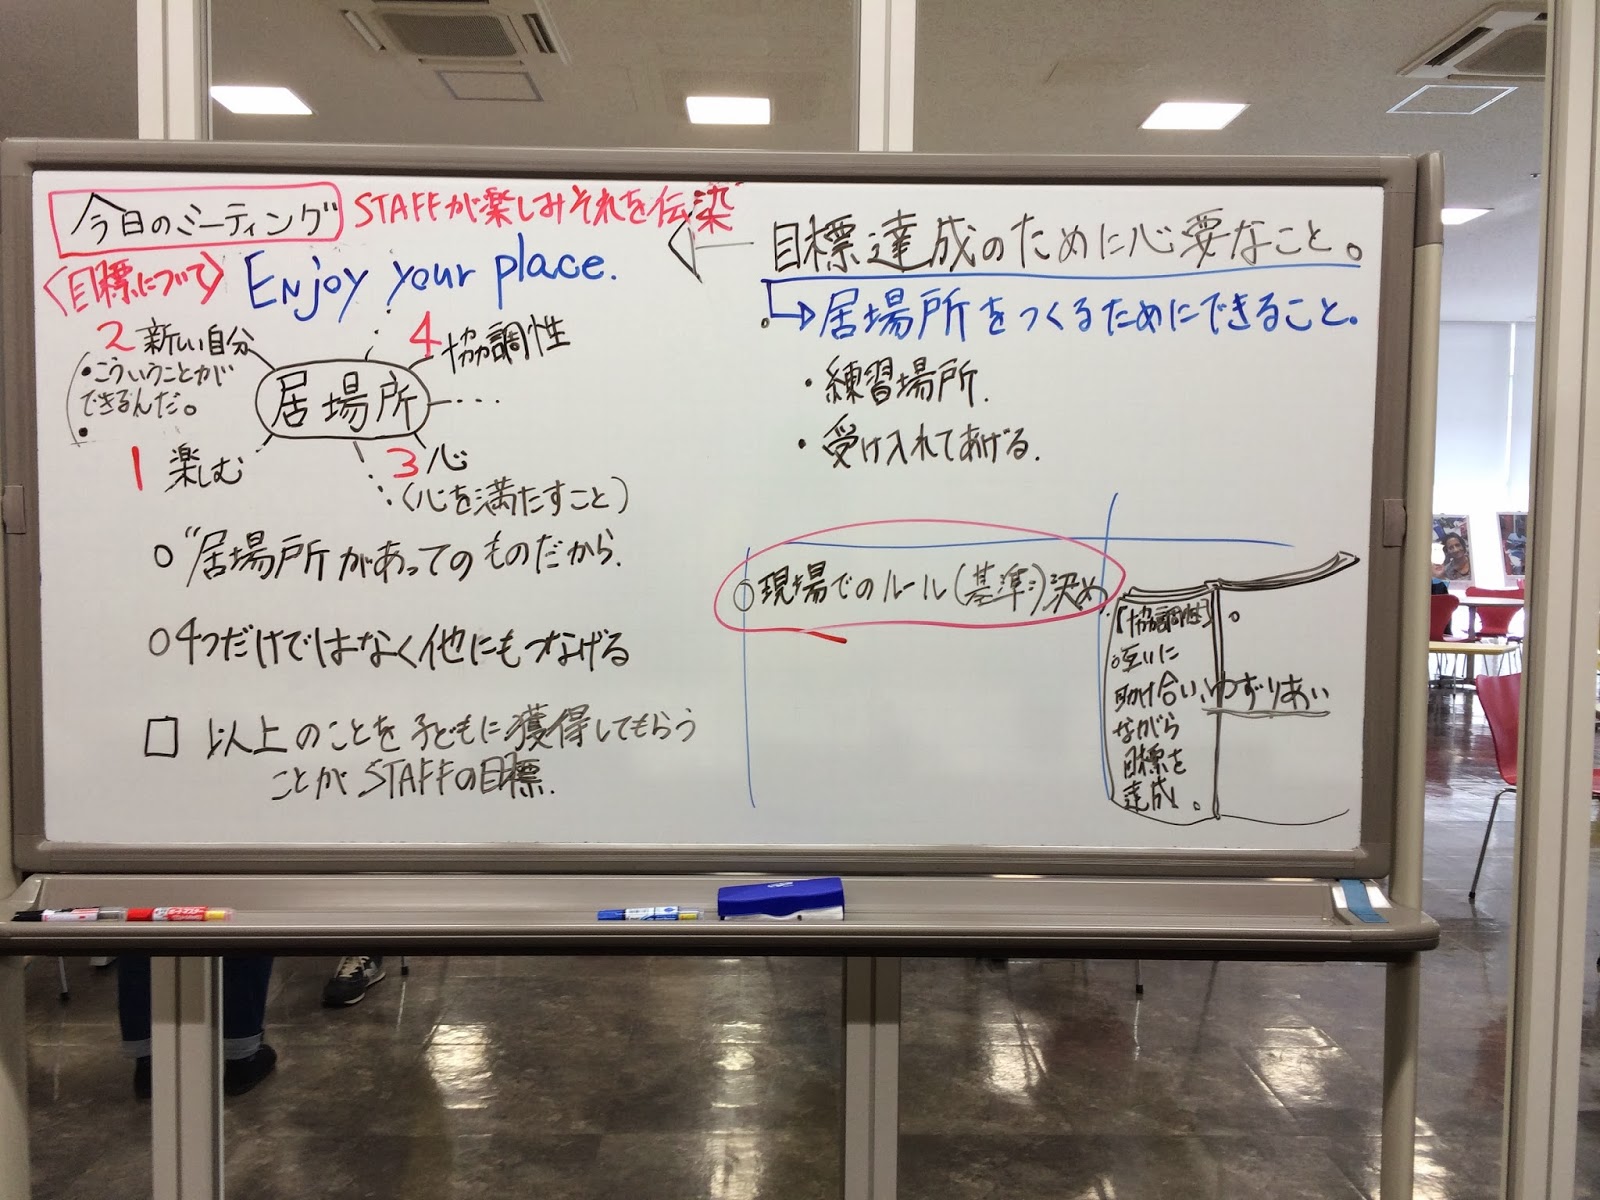 今日のミーティング
STAFFが楽しみそれを伝染
〈目標について〉
Enjoy your place.
2 新しい自分
・こういうことが
できるんだ。
・
4 協調性
居場所
・・・
1 楽しむ
3 心
(心を満たすこと)
○"居場所があってのものだから.
○4つだけではなく他にもつなげる
□ 以上のことを子どもに獲得してもらう
ことがSTAFFの目標.
目標達成のために必要なこと。
→居場所をつくるためにできること。
・練習場所.
・受け入れてあげる.
○現場でのルール(基準)決め
【協調性】
○互いに
助け合い、ゆずりあい
ながら
目標を
達成。